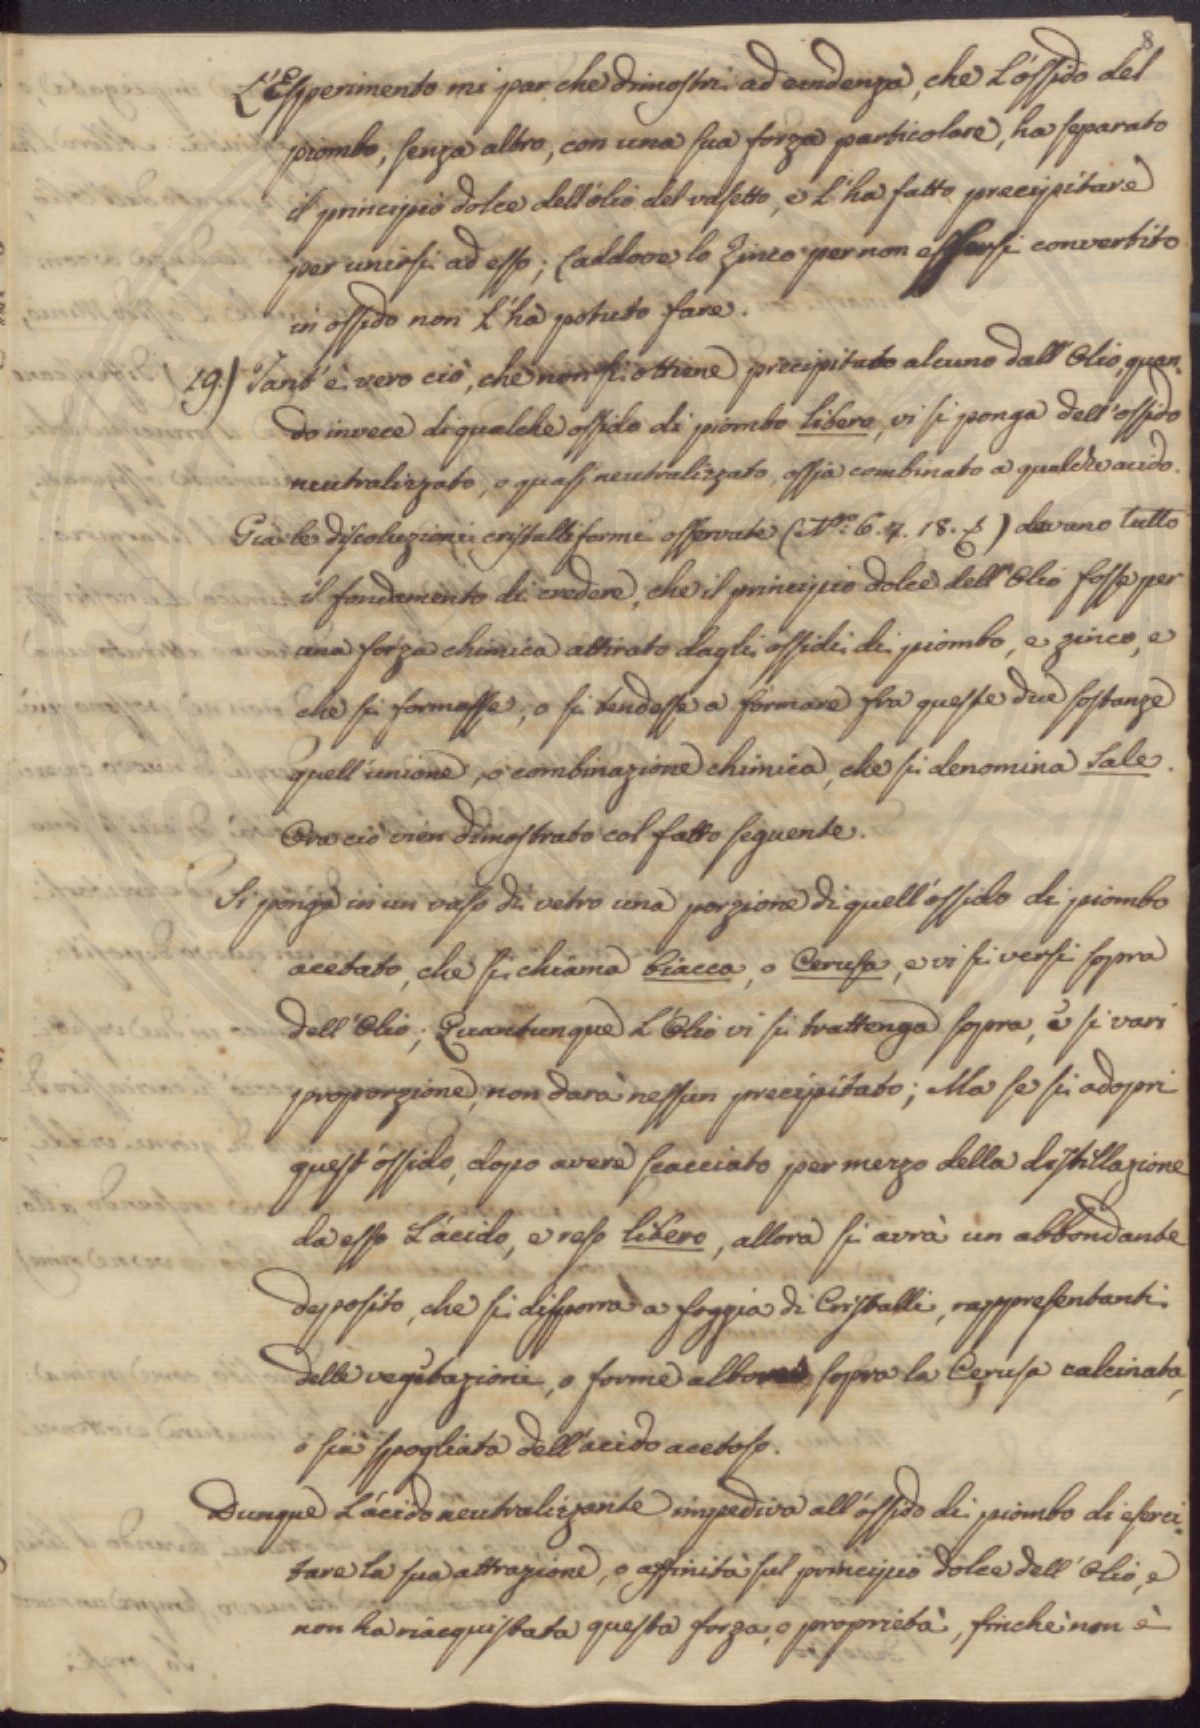 8
L'Esperimento mi par che dimostri ad evidenza, che L'ossido del
piombo, senza altro, con una sua forza particolare, ha separato
il principio dolce dell'olio del vasetto, e l'ha fatto precipitare
per unirsi ad esso; Laddove lo Zinco per non essersi convertito
in ossido non l'ha potuto fare.
19.) Tant'è vero ciò, che non si ottiene precipitato alcuno dall'Olio, quan-
do invece di qualche ossido di piombo libero, vi si ponga dell'ossido
neutralizzato, o quasi neutralizzato, ossia combinato a qualche acido.
Già le discoluzioni cristalliformi osservate (N.ri 6. 7. 18.) davano tutto
il fondamento di credere, che il principio dolce dell'Olio fosse per
una forza chimica attirato dagli ossidi di piombo, e zinco, e
che si formasse, o si tendesse a formare fra queste due sostanze
quell'unione, o combinazione chimica, che si denomina Sale.
Ora ciò vien dimostrato col fatto seguente.
Si ponga in un vaso di vetro una porzione di quell'ossido di piombo
acetato, che si chiama biacca, o Cerusa, e vi si versi sopra
dell'Olio; Quantunque L'Olio vi si trattenga sopra, e si vari
proporzione, non darà nessun precipitato; Ma se si adopri
quest'ossido, dopo avere scacciato per mezzo della distillazione
da esso L'acido, e reso libero, allora si avrà un abbondante
deposito, che si disporrà a foggia di Cristalli, rappresentanti
delle vegitazioni, o forme alboree sopra la Cerusa calcinata,
o sia spogliata dell'acido acetoso.
Dunque L'acido neutralizzante impediva all'ossido di piombo di eserci-
tare la sua attrazione, o affinità sul principio dolce dell'Olio, e
non ha riacquistata questa forza, o proprietà, finchè non è